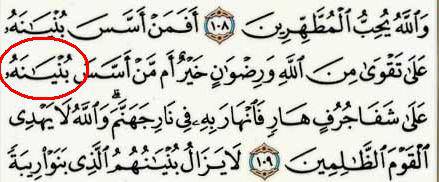 وَاللَّهُ يُحِبُّ الْمُطَّهِّرِينَ ١٠٨ أَفَمَنْ أَسَّسَ بُنْيَـٰنَهُۥ
عَلَىٰ تَقْوَىٰ مِنَ اللَّهِ وَرِضْوَٰنٍ خَيْرٌ أَم مَّنْ أَسَّسَ بُنْيَـٰنَهُۥ
عَلَىٰ شَفَا جُرُفٍ هَارٍ فَانْهَارَ بِهِۦ فِي نَارِ جَهَنَّمَ ۗ وَاللَّهُ لَا يَهْدِي
الْقَوْمَ الظَّـٰلِمِينَ ١٠٩ لَا يَزَالُ بُنْيَـٰنُهُمُ الَّذِي بَنَوْا رِيبَةً